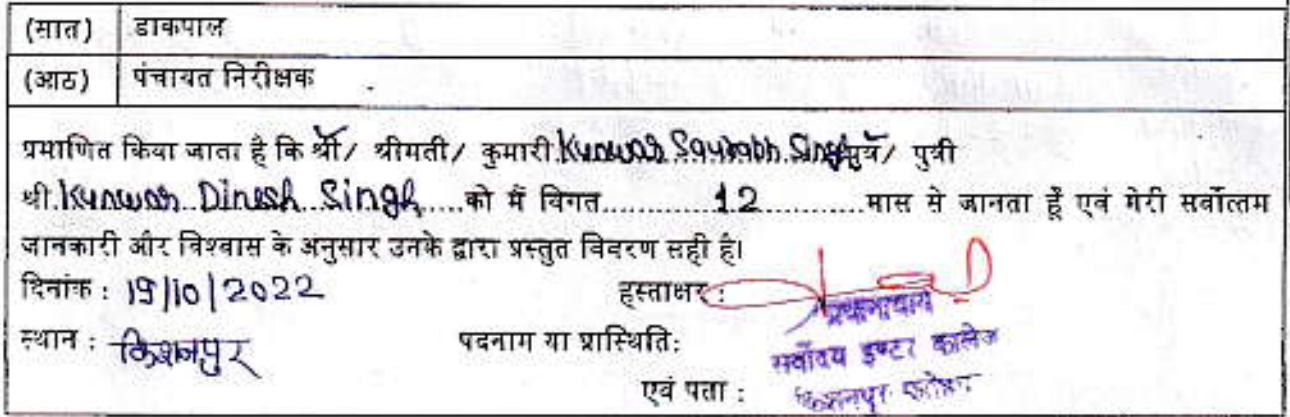 (सात) डाकपाल
(आठ) पंचायत निरीक्षक
प्रमाणित किया जाता है कि श्री/ श्रीमती/ कुमारी Kunwar Saurabh Singh पुत्र/ पुत्री
श्री. Kunwar Dinesh Singh.....को मैं विगत............12............मास से जानता हूँ एवं मेरी सर्वोत्तम
जानकारी और विश्वास के अनुसार उनके द्वारा प्रस्तुत विवरण सही है।
दिनांक : 19/10/2022 हस्ताक्षर :
प्रधानाचार्य
स्थान : किशनपुर पदनाम या प्रास्थिति: सर्वोदय इण्टर कालेज
एवं पता : किशनपुर